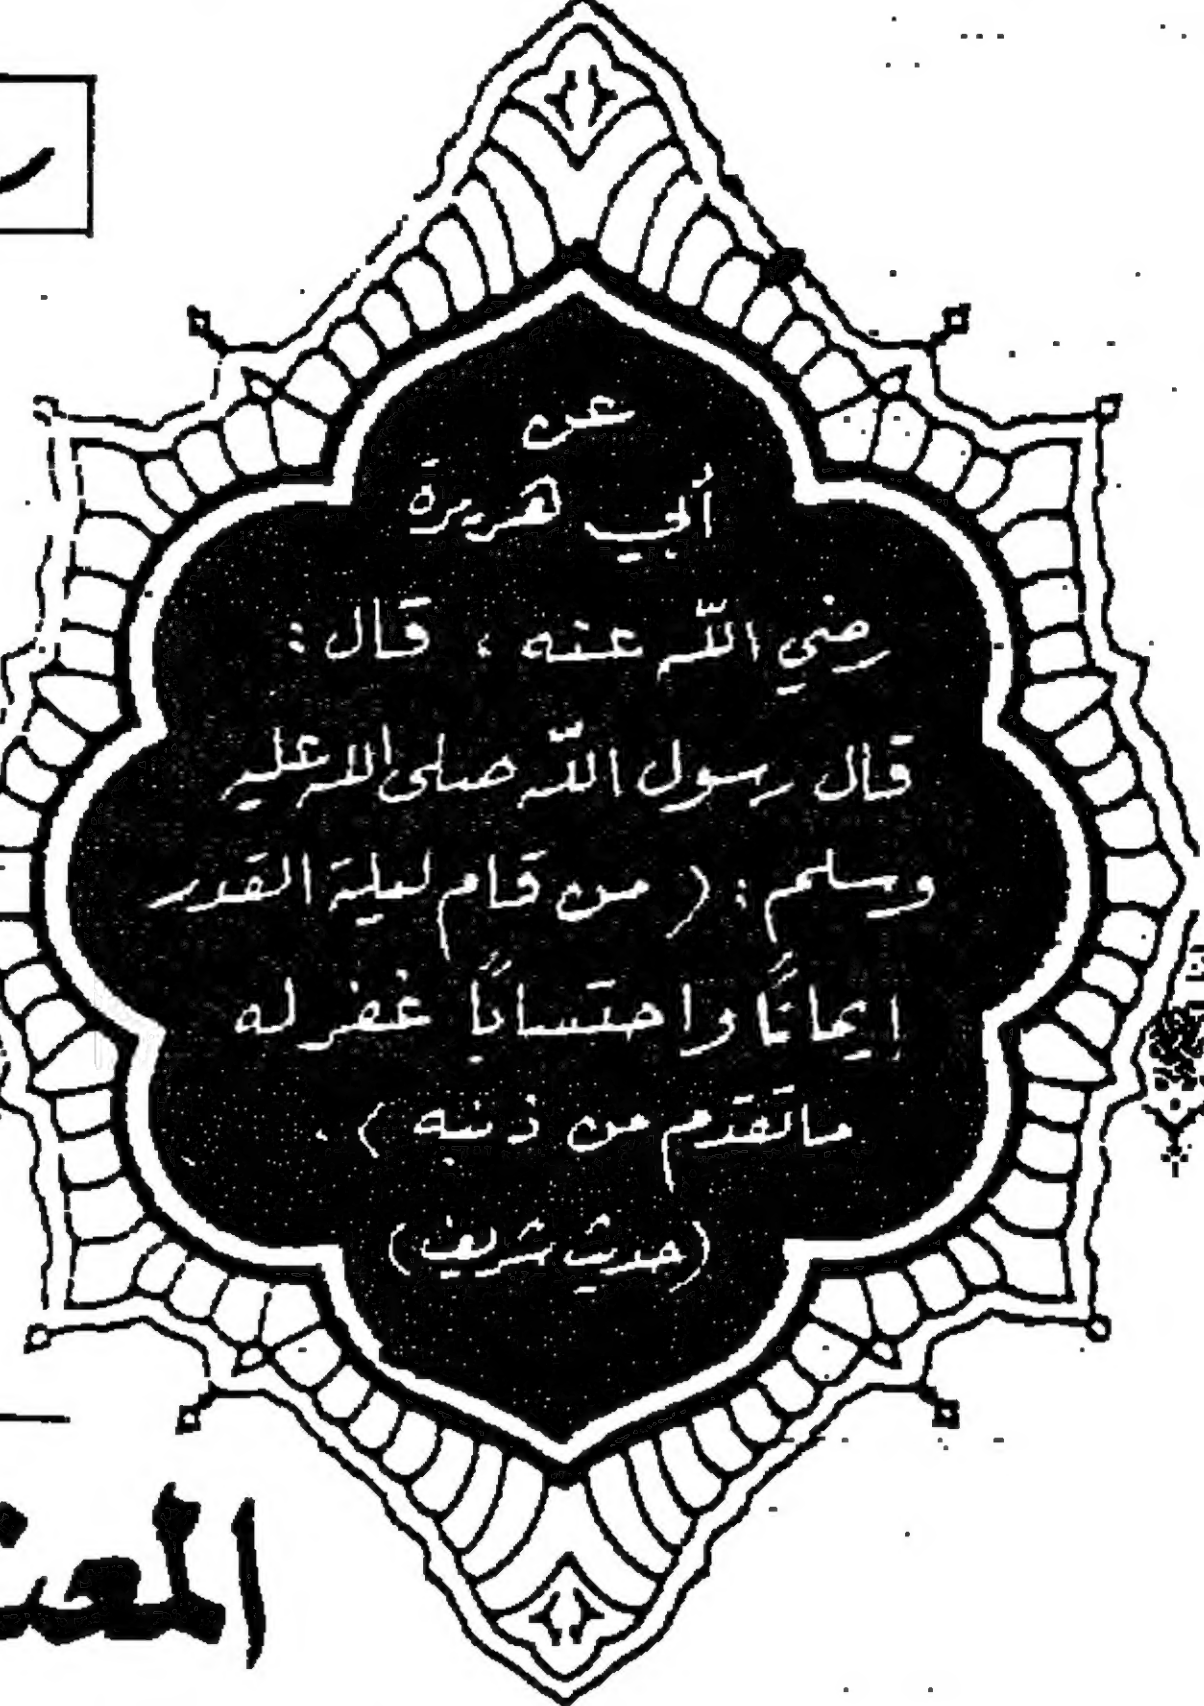 عن
أبي هريرة
رضي الله عنه ، قال :
قال رسول الله صلى الله عليه
وسلم : ( من قام ليلة القدر
إيمانًا واحتسابًا غفر له
ماتقدم من ذنبه ) .
(حديث شريف)